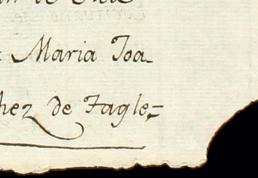 Maria Joa
chez de Tagle=